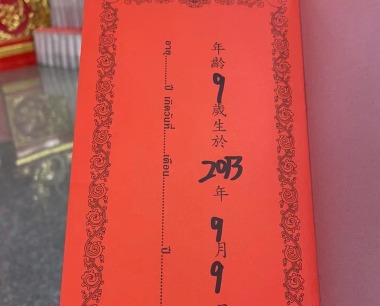 年齡9歲生於2013年9月9
อายุ..........ปี เกิดวันที่..........เดือน....................ปี..........